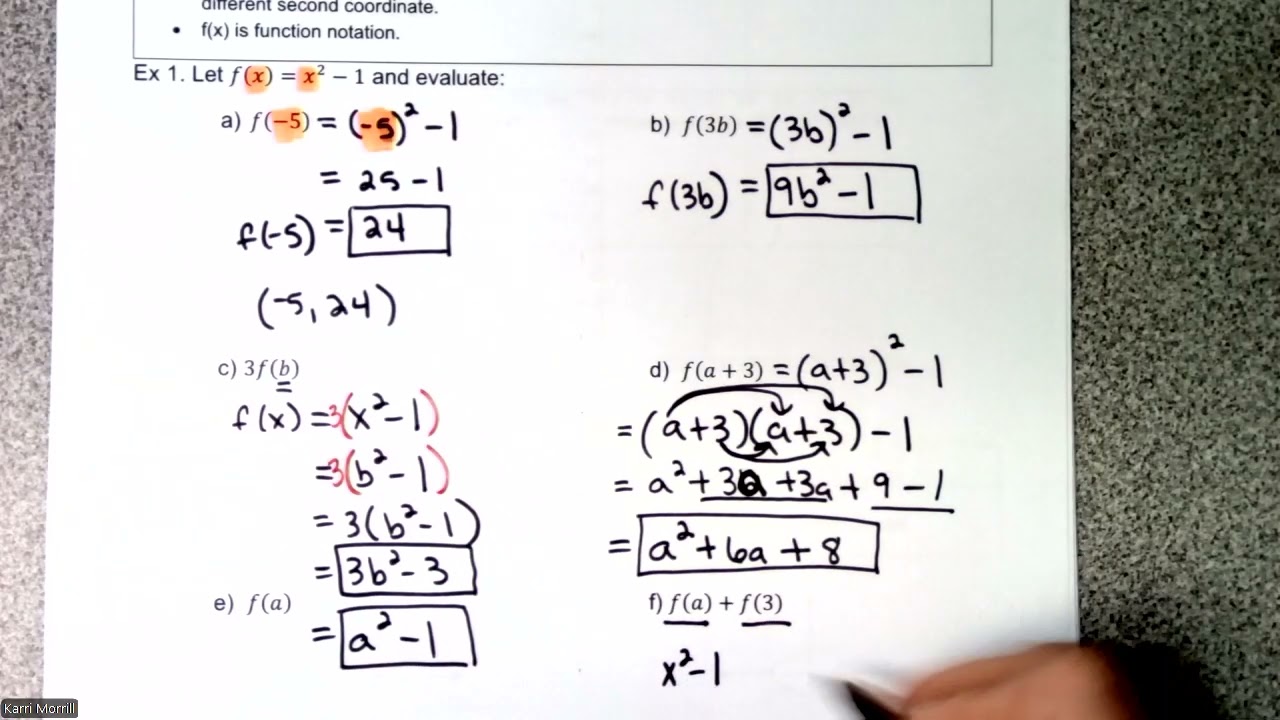 different second coordinate.
• f(x) is function notation.
Ex 1. Let f(x) = x² − 1 and evaluate:
a) f(−5) = (-5)² - 1
= 25 - 1
f(-5) = 24
(-5, 24)
b) f(3b) = (3b)² - 1
f(3b) = 9b² - 1
c) 3f(b)
f(x) = 3(x² - 1)
= 3(b² - 1)
= 3(b² - 1)
= 3b² - 3
d) f(a + 3) = (a+3)² - 1
= (a+3)(a+3) - 1
= a² + 3a + 3a + 9 - 1
= a² + 6a + 8
e) f(a)
= a² - 1
f) f(a) + f(3)
x² - 1
Karri Morrill